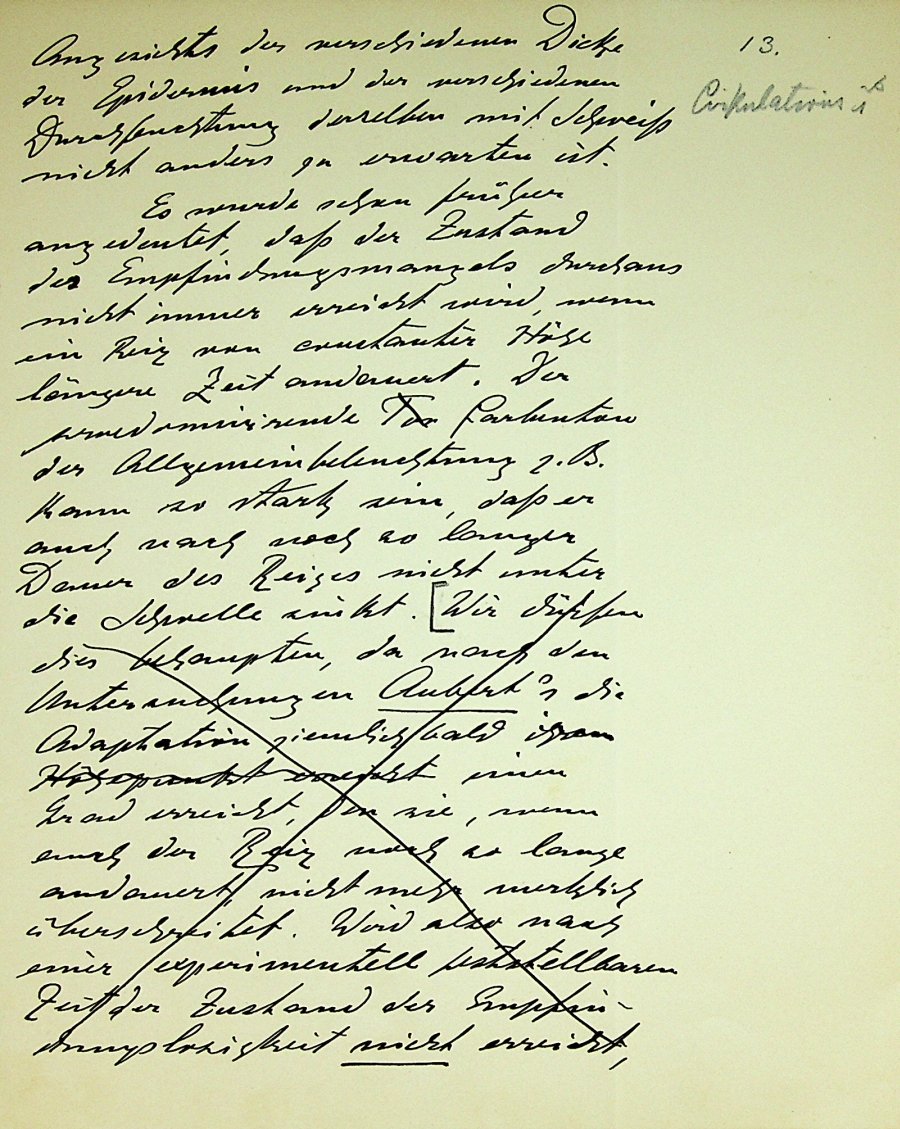 13.
Angesichts der verschiedenen Dicke
der Epidermis und der verschiedenen
Cirkulations
Durchfeuchtung derselben mit Schweiß
nicht anders zu erwarten ist.
Es wurde schon früher
angedeutet, daß der Zustand
des Empfindungsmangels durchaus
nicht immer erreicht wird, wenn
ein Reiz von constanter Höhe
längere Zeit andauert. Der
praedominirende Ton Farbenton
der Allgemeinbeleuchtung z. B.
kann so stark sein, daß er
auch nach noch so langer
Dauer des Reizes nicht unter
die Schwelle sinkt. [Wir dürfen
dies behaupten, da nach den
Untersuchungen Aubert's die
Adaptation ziemlich bald ihren
Höhepunkt erreicht einen
Grad erreicht, den sie, wenn
auch der Reiz noch so lange
andauert, nicht mehr merklich
überschreitet. Wird also nach
einer experimentell feststellbaren
Zeit der Zustand der Empfin-
dungslosigkeit nicht erreicht,